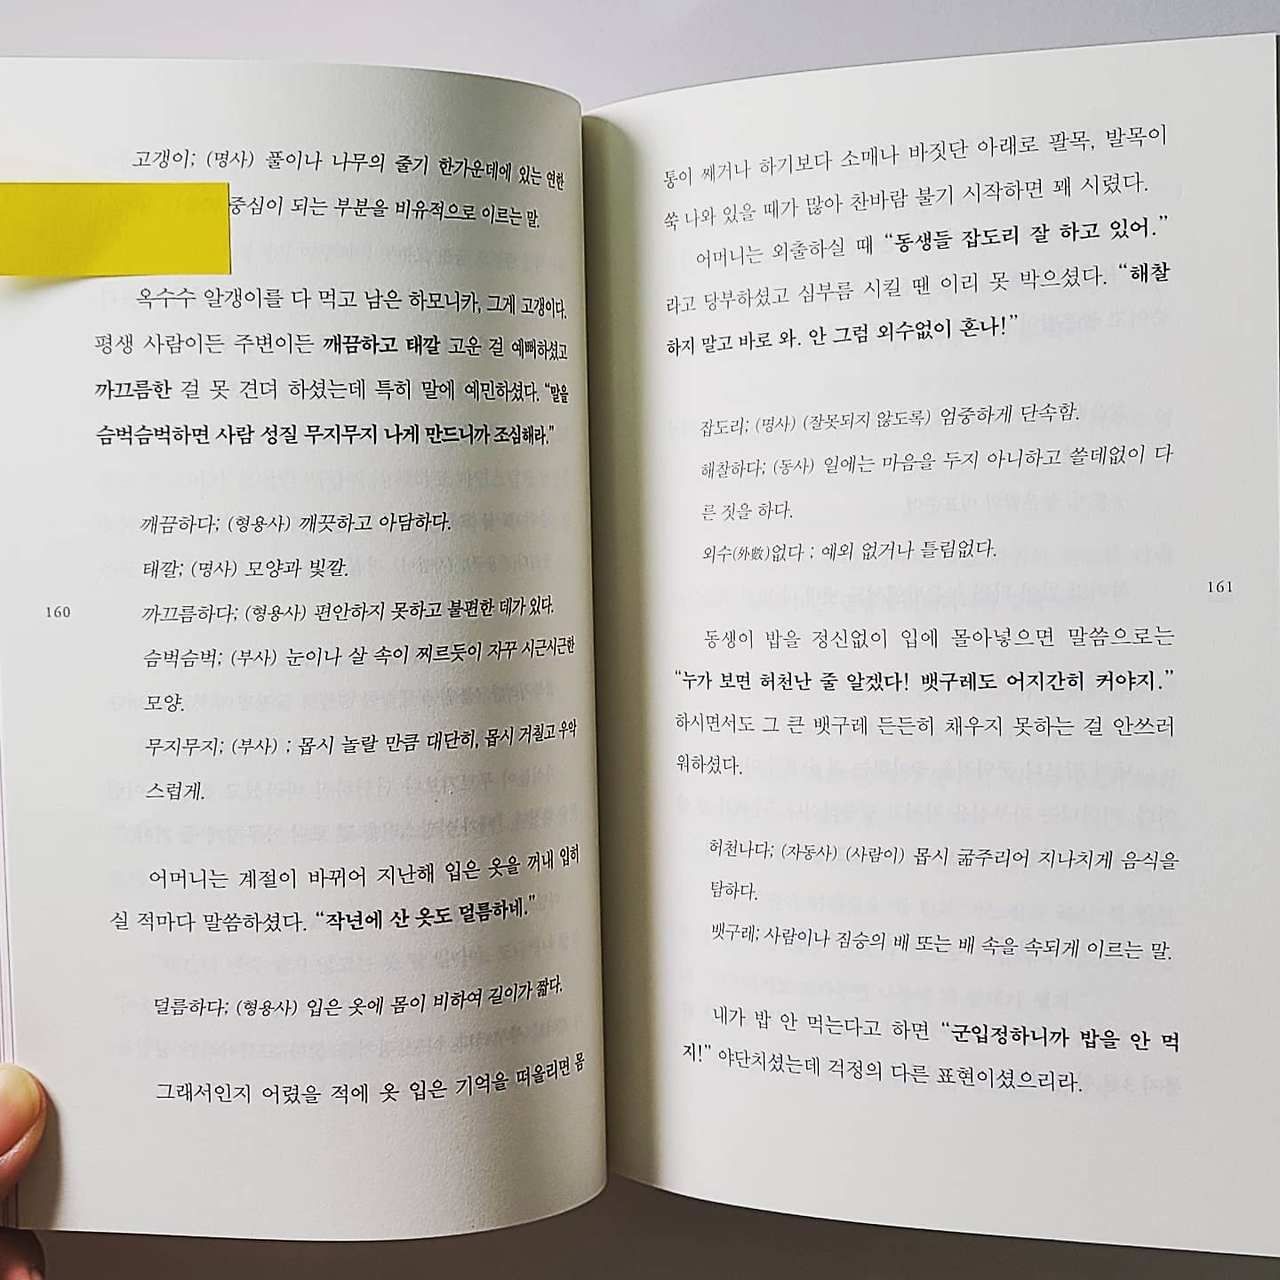 고갱이; (명사) 풀이나 나무의 줄기 한가운데에 있는 연한
중심이 되는 부분을 비유적으로 이르는 말.
옥수수 알갱이를 다 먹고 남은 하모니카, 그게 고갱이다.
평생 사람이든 주변이든 깨끔하고 태깔 고운 걸 예뻐하셨고
까끄름한 걸 못 견뎌 하셨는데 특히 말에 예민하셨다. “말을
슴벅슴벅하면 사람 성질 무지무지 나게 만드니까 조심해라.”
깨끔하다; (형용사) 깨끗하고 아담하다.
태깔; (명사) 모양과 빛깔.
까끄름하다; (형용사) 편안하지 못하고 불편한 데가 있다.
슴벅슴벅; (부사) 눈이나 살 속이 찌르듯이 자꾸 시근시근한
모양.
무지무지; (부사) : 몹시 놀랄 만큼 대단히, 몹시 거칠고 우악
스럽게.
어머니는 계절이 바뀌어 지난해 입은 옷을 꺼내 입히
실 적마다 말씀하셨다. “작년에 산 옷도 덜름하네.”
덜름하다; (형용사) 입은 옷에 몸이 비하여 길이가 짧다.
그래서인지 어렸을 적에 옷 입은 기억을 떠올리면 몸
160
통이 째거나 하기보다 소매나 바짓단 아래로 팔목, 발목이
쑥 나와 있을 때가 많아 찬바람 불기 시작하면 꽤 시렸다.
어머니는 외출하실 때 “동생들 잡도리 잘 하고 있어.”
라고 당부하셨고 심부름 시킬 땐 이리 못 박으셨다. “해찰
하지 말고 바로 와. 안 그럼 외수없이 혼나!”
잡도리; (명사) (잘못되지 않도록) 엄중하게 단속함.
해찰하다; (동사) 일에는 마음을 두지 아니하고 쓸데없이 다
른 짓을 하다.
외수(外數)없다 ; 예외 없거나 틀림없다.
동생이 밥을 정신없이 입에 몰아넣으면 말씀으로는
“누가 보면 허천난 줄 알겠다! 뱃구레도 어지간히 커야지.”
하시면서도 그 큰 뱃구레 든든히 채우지 못하는 걸 안쓰러
워하셨다.
허천나다; (자동사) (사람이) 몹시 굶주리어 지나치게 음식을
탐하다.
뱃구레; 사람이나 짐승의 배 또는 배 속을 속되게 이르는 말.
내가 밥 안 먹는다고 하면 “군입정하니까 밥을 안 먹
지!” 야단치셨는데 걱정의 다른 표현이셨으리라.
161